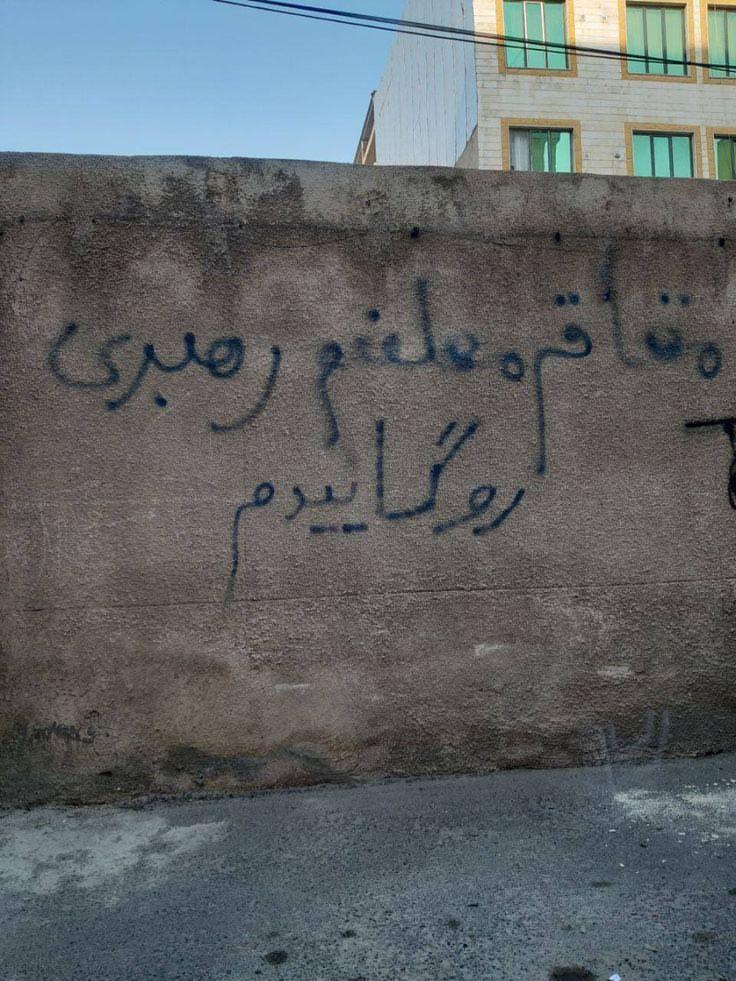 مقاقم معلغم رهبری
رو گاییدم